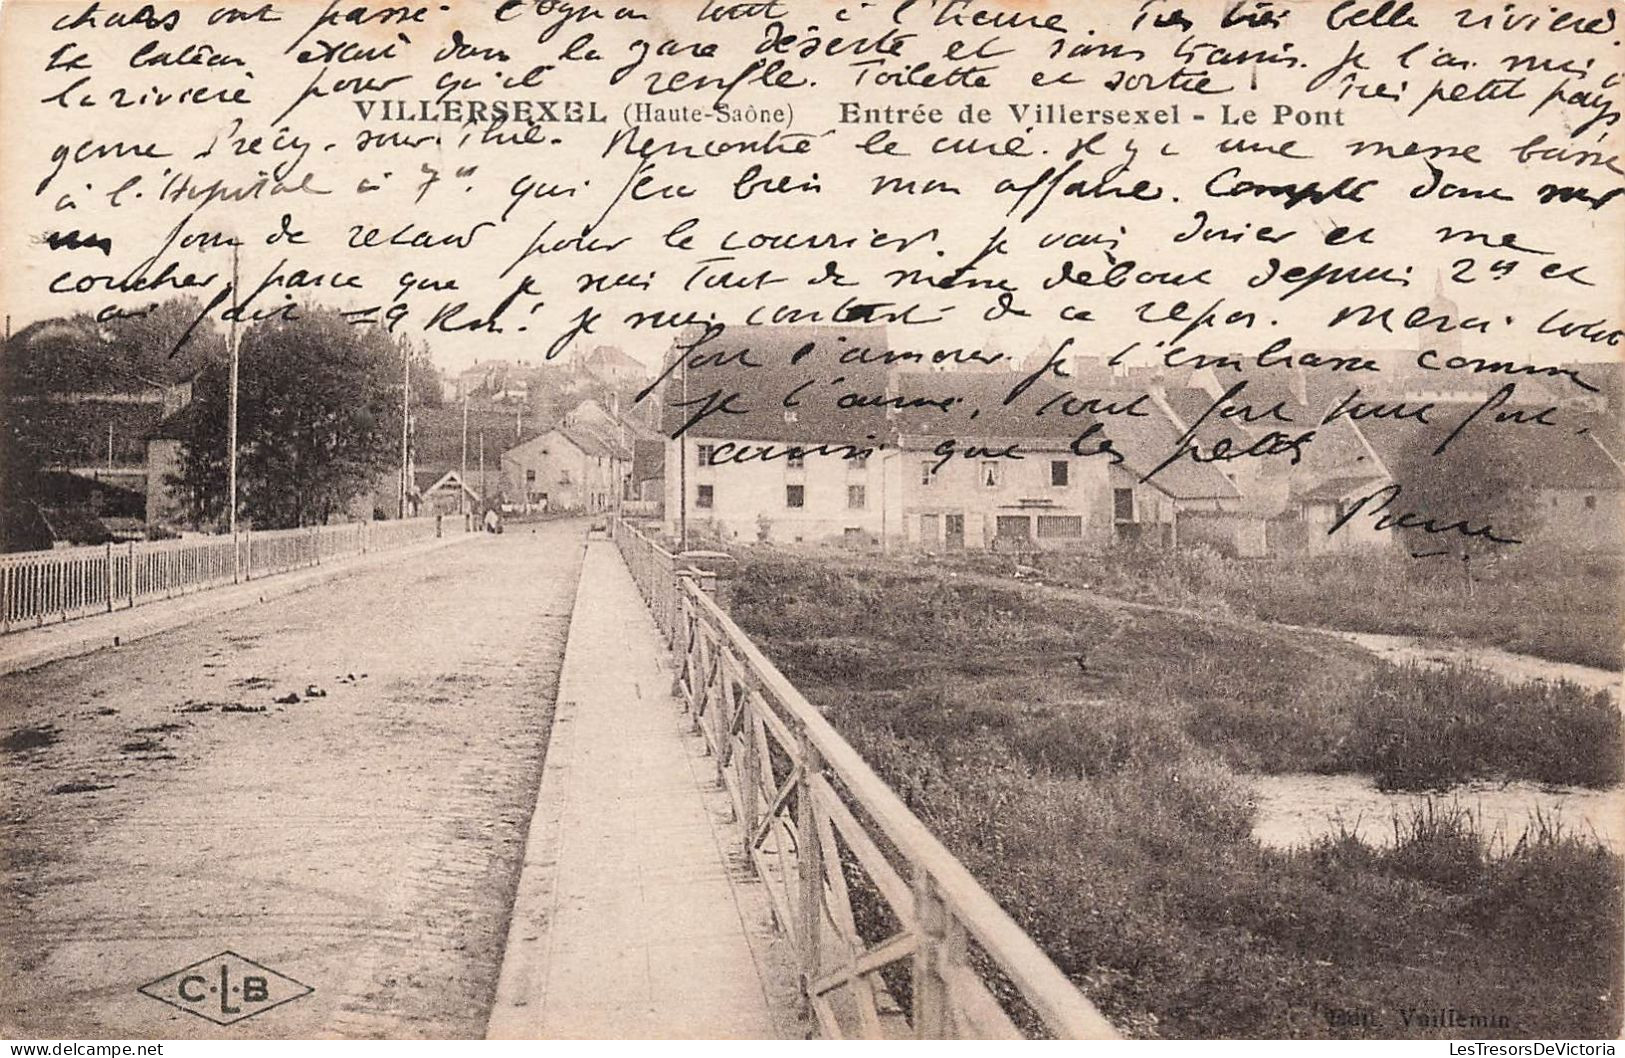 ont passé. L'Ognon tout à l'heure. Très très belle rivière.
Le bateau était dans la gare déserte et sans trains. Je l'ai mis à
la rivière pour qu'il renfle. Toilette et sortie. Très petit pays
VILLERSEXEL (Haute-Saône) Entrée de Villersexel - Le Pont
genre Précy-sous-Thil. Rencontré le curé. Il y a une messe basse
à l'Hopital à 7h. qui fera bien mon affaire. Compte donc sur
un jour de retard pour le courrier. Je vais diner et me
coucher, parce que je suis tout de même debout depuis 2h et
ai fait 29 Km! Je suis content de ce repos. Merci
l'amour. Je t'embrasse comme
je t'aime, tout fort tout fort,
ainsi que les petits.
Pierre
C.L.B
Edit. Vuillemin
LesTresorsDeVictoria